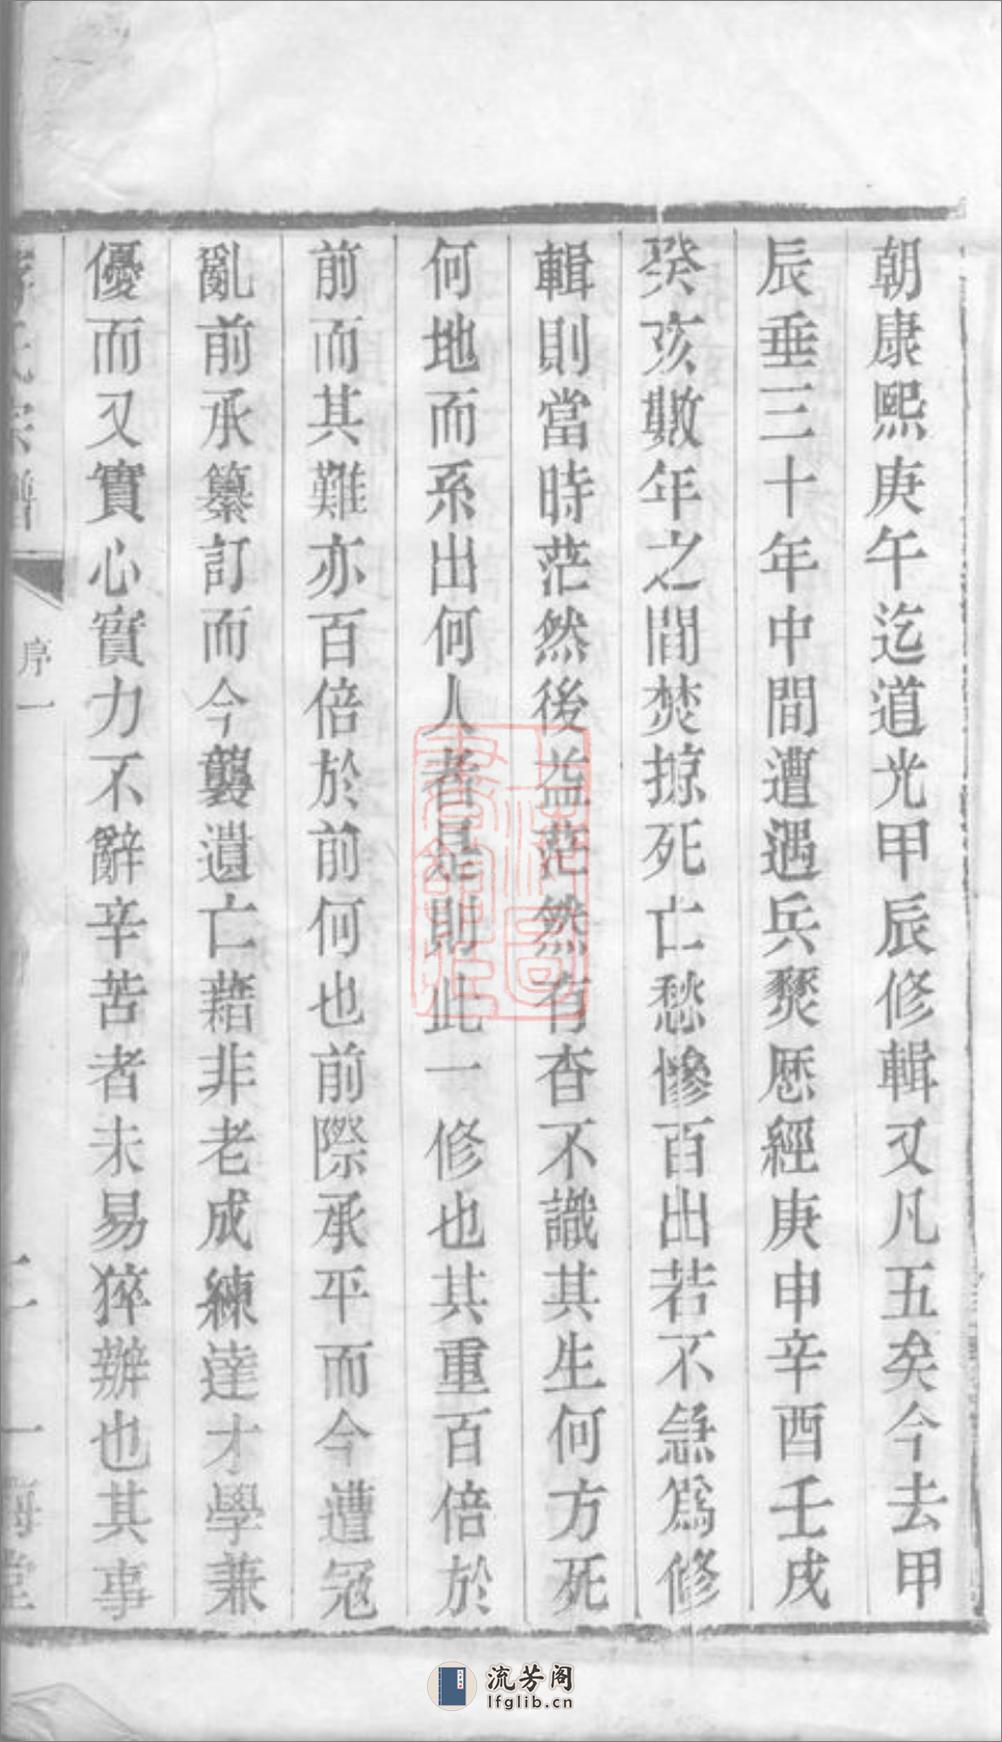 朝康熙庚午迄道光甲辰修輯又凡五矣今去甲
辰垂三十年中間遭遇兵燹歷經庚申辛酉壬戌
癸亥數年之間焚掠死亡愁慘百出若不急爲修
輯則當時茫然後益茫然有杳不識其生何方死
何地而系出何人者是則此一修也其重百倍於
前而其難亦百倍於前何也前際承平而今遭冦
亂前承纂訂而今襲遺亡藉非老成練達才學兼
優而又實心實力不辭辛苦者未易猝辦也其事
氏宗譜
序一
二
一
海堂
上海圖書館藏
流芳阁
lfglib.cn